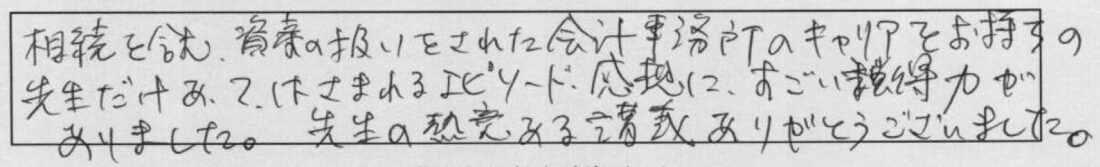 相続を含む、資産の扱いをされた会計事務所のキャリアをお持ちの
先生だけあって、はさまれるエピソード、感想に、すごい説得力が
ありました。先生の熱意ある講義、ありがとうございました。